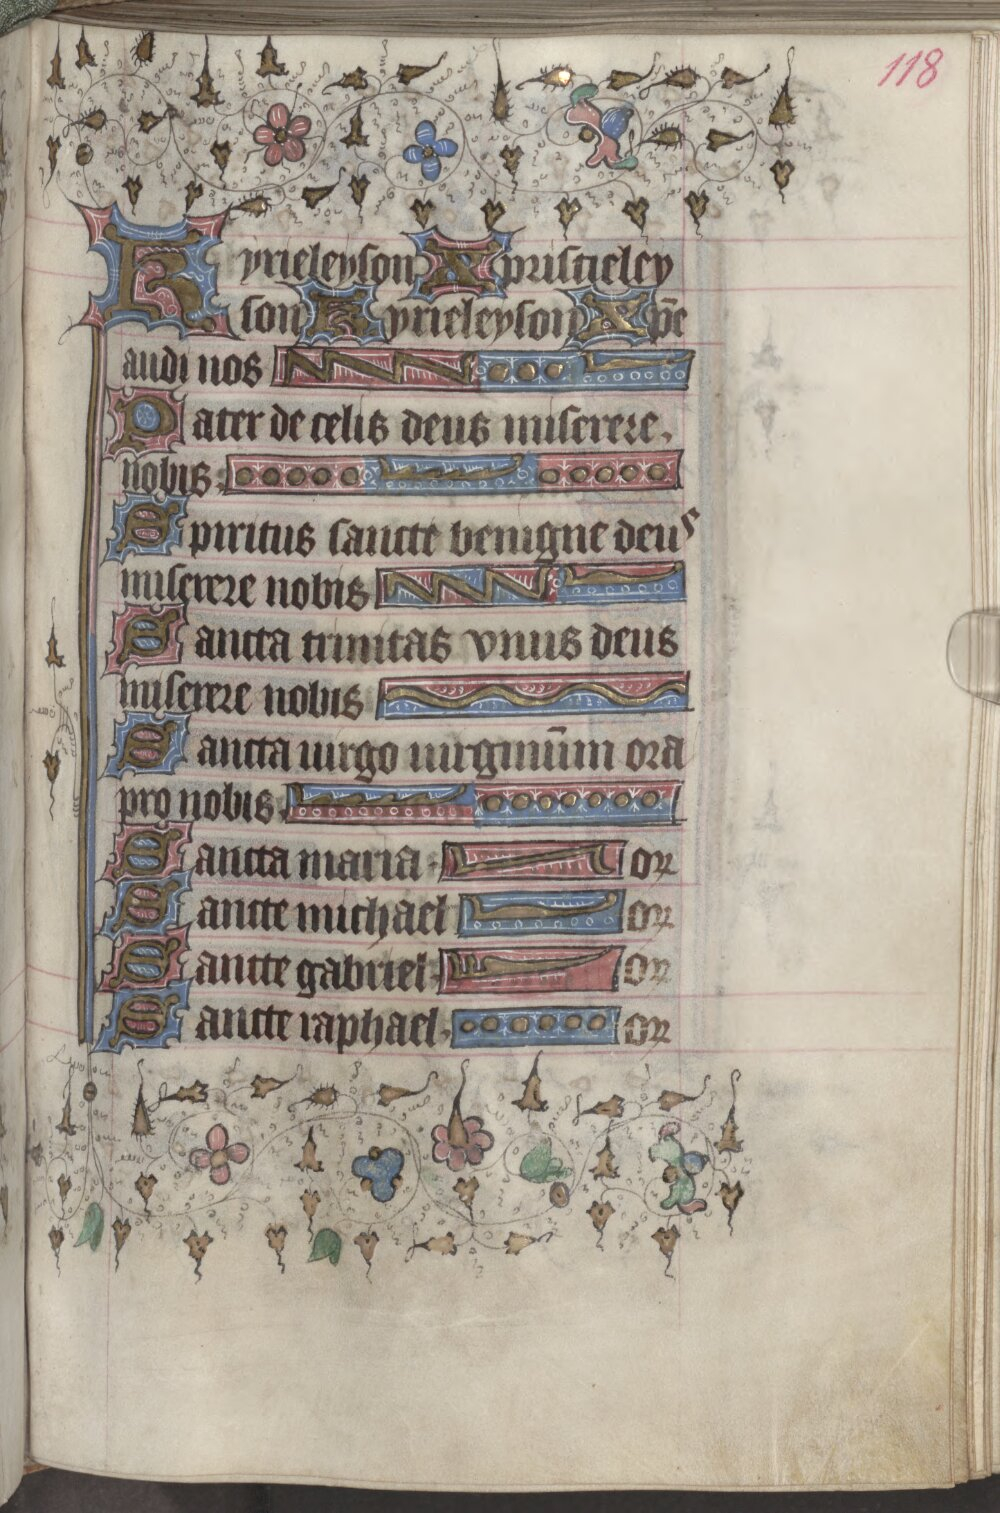 118
Kyrieleyson Xpristieley
son Kyrieleyson Xp̄e
audi nos
Pater de celis deus miserere
nobis
Spiritus sancte benigne deus
miserere nobis
Sancta trinitas vnus deus
miserere nobis
Sancta uirgo uirginūm ora
pro nobis
Sancta maria orꝛ
Sancte michael orꝛ
Sancte gabriel orꝛ
Sancte raphael orꝛ